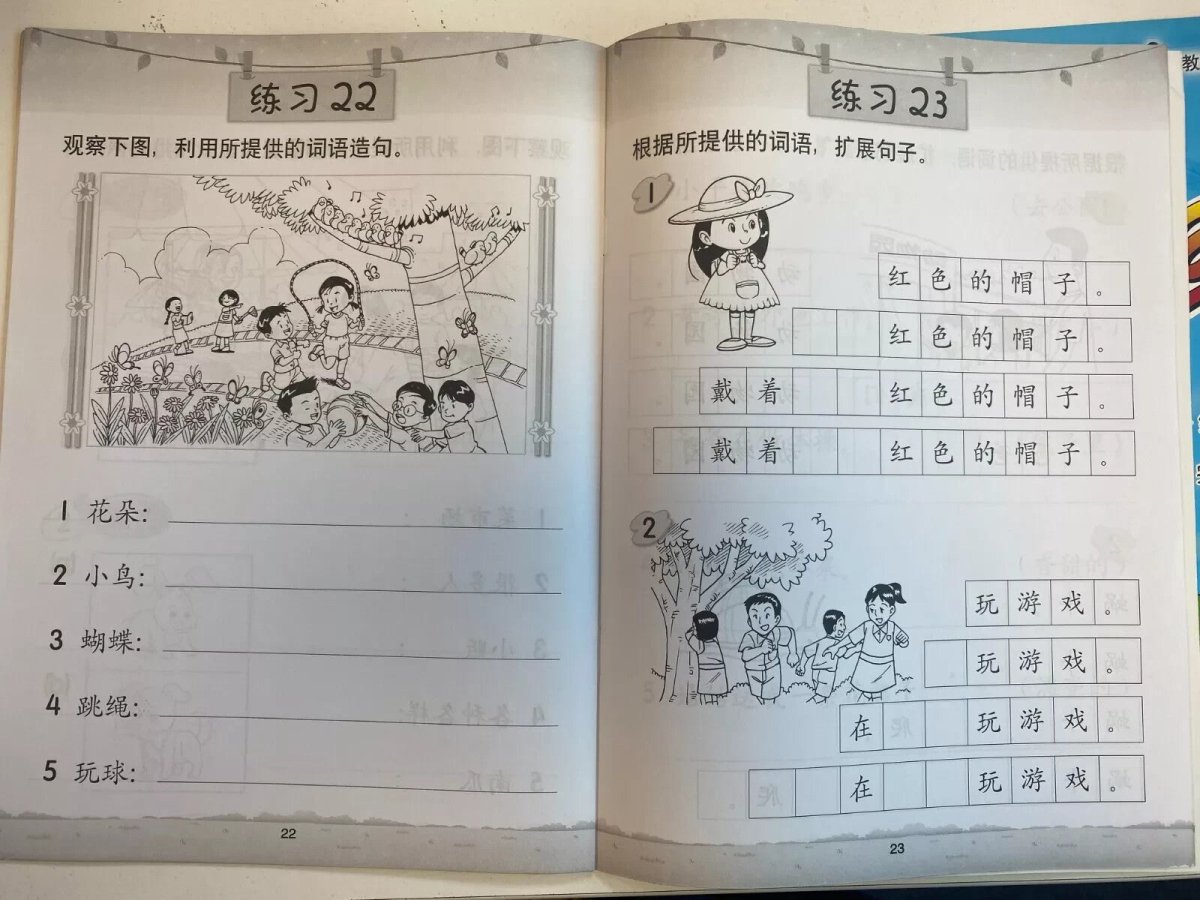 练习 22
观察下图，利用所提供的词语造句。
1 花朵:
2 小鸟:
3 蝴蝶:
4 跳绳:
5 玩球:
22
练习 23
根据所提供的词语，扩展句子。
1
红色的帽子。
红色的帽子。
戴着 红色的帽子。
戴着 红色的帽子。
2
玩游戏。
玩游戏。
在 玩游戏。
在 玩游戏。
23
教